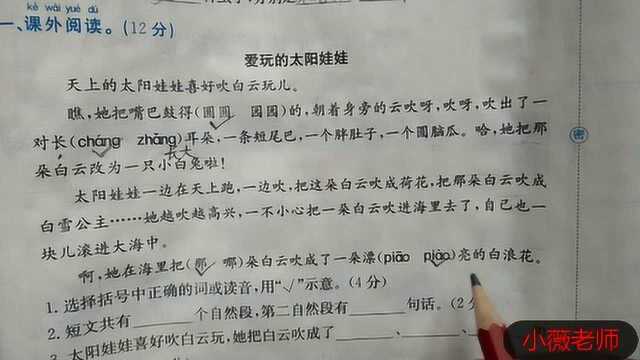 kè wài yuè dú
一、课外阅读。(12分)
爱玩的太阳娃娃
天上的太阳娃娃喜好吹白云玩儿。
瞧,她把嘴巴鼓得(圆圆 园园)的,朝着身旁的云吹呀,吹呀,吹出了一
对长(cháng zhǎng)耳朵,一条短尾巴,一个胖肚子,一个圆脑瓜。哈,她把那
长大
朵白云改为一只小白兔啦!
太阳娃娃一边在天上跑,一边吹,把这朵白云吹成荷花,把那朵白云吹成
白雪公主……她越吹越高兴,一不小心把一朵白云吹进海里去了,自己也一
块儿滚进大海中。
啊,她在海里把(那 哪)朵白云吹成了一朵漂(piāo piào)亮的白浪花。
1. 选择括号中正确的词或读音,用“√”示意。(4分)
2. 短文共有 个自然段,第二自然段有 句话。(2分
3. 太阳娃娃喜好吹白云玩,她把白云吹成了 、 、
密
小薇老师